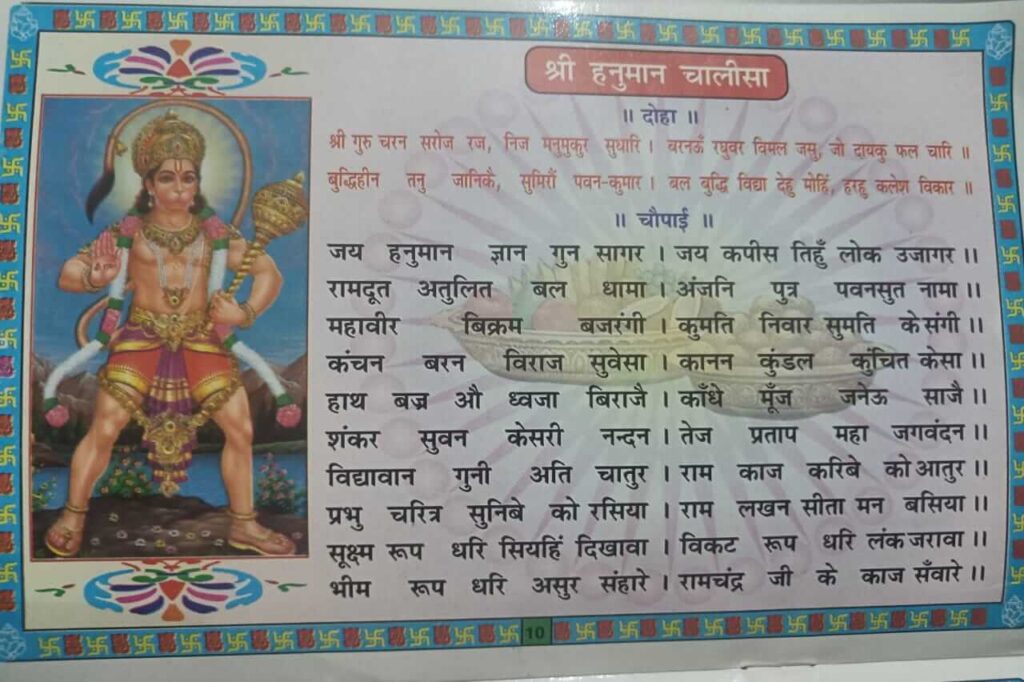 श्री हनुमान चालीसा
॥ दोहा ॥
श्री गुरु चरन सरोज रज, निज मनुमुकुर सुधारि । बरनऊँ रघुवर विमल जसु, जो दायकु फल चारि ॥
बुद्धिहीन तनु जानिकै, सुमिरौं पवन-कुमार । बल बुद्धि विद्या देहु मोहिं, हरहु कलेश विकार ॥
॥ चौपाई ॥
जय हनुमान ज्ञान गुन सागर । जय कपीस तिहुँ लोक उजागर ॥
रामदूत अतुलित बल धामा । अंजनि पुत्र पवनसुत नामा ॥
महावीर बिक्रम बजरंगी । कुमति निवार सुमति के संगी ॥
कंचन बरन विराज सुवेसा । कानन कुंडल कुंचित केसा ॥
हाथ बज्र औ ध्वजा बिराजै । काँधे मूँज जनेऊ साजै ॥
शंकर सुवन केसरी नन्दन । तेज प्रताप महा जगवंदन ॥
विद्यावान गुनी अति चातुर । राम काज करिबे को आतुर ॥
प्रभु चरित्र सुनिबे को रसिया । राम लखन सीता मन बसिया ॥
सूक्ष्म रूप धरि सियहिं दिखावा । विकट रूप धरि लंक जरावा ॥
भीम रूप धरि असुर संहारे । रामचंद्र जी के काज सँवारे ॥
10